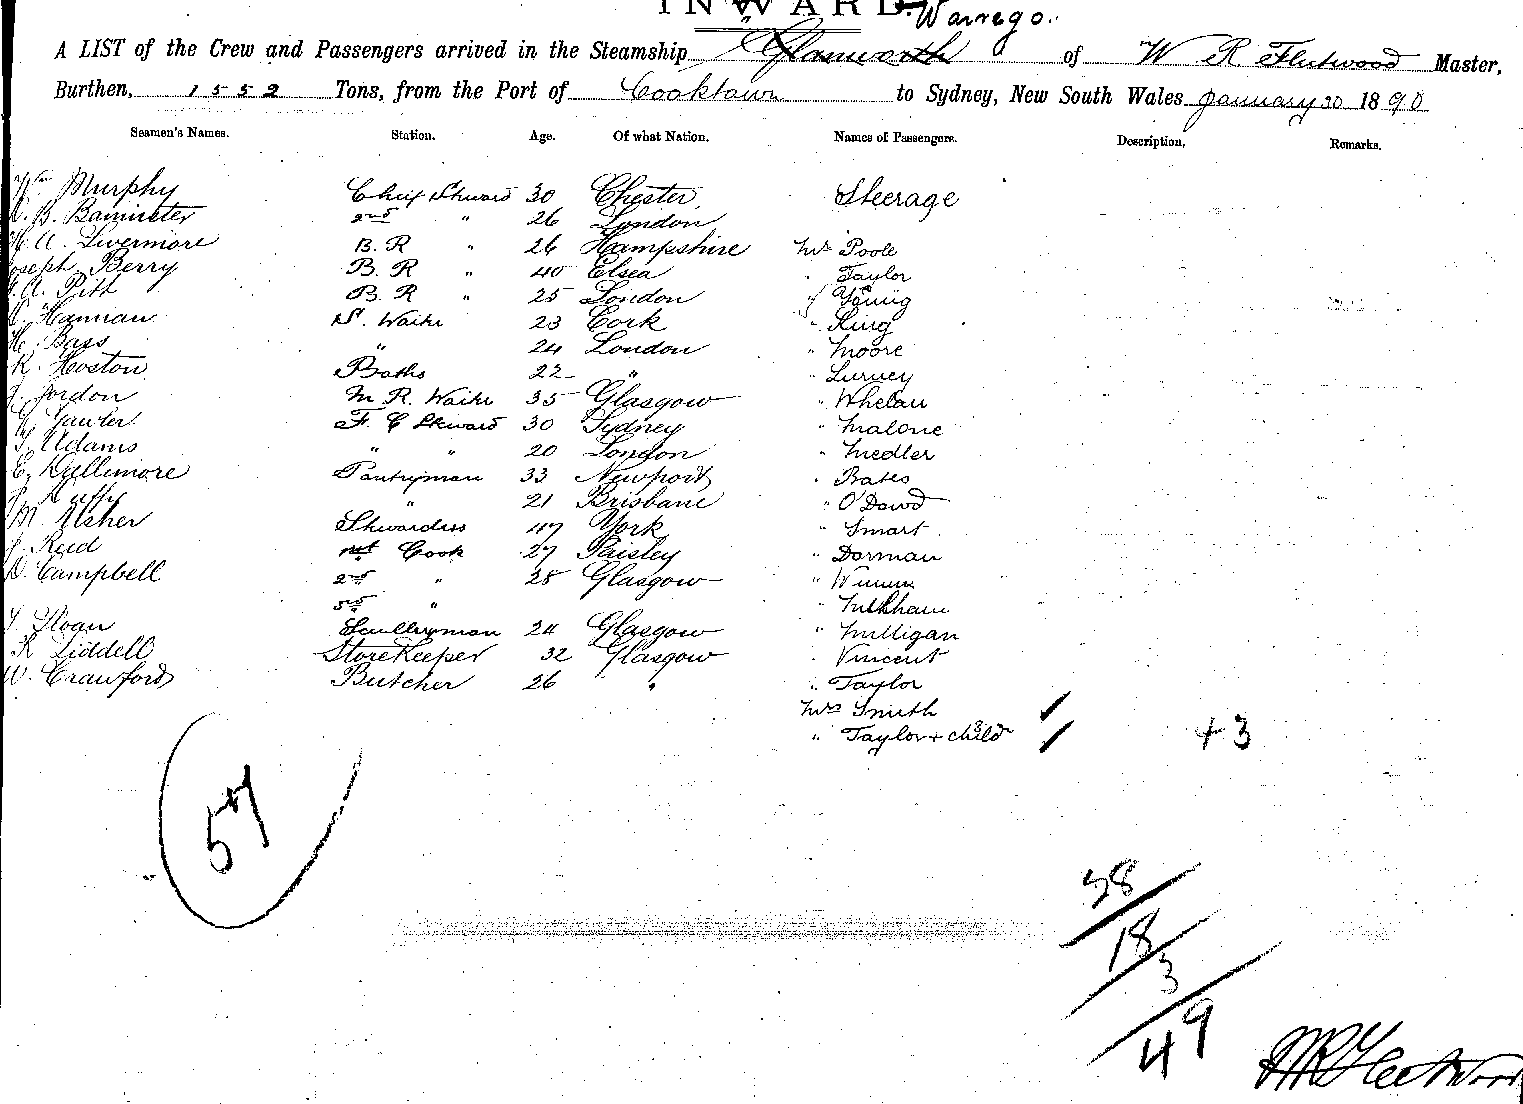 INWARD.
Warrego.
A LIST of the Crew and Passengers arrived in the Steamship Glanworth of W R Fleetwood Master,
Burthen, 1552 Tons, from the Port of Cooktown to Sydney, New South Wales January 30 1890
Seamen's Names. Station. Age. Of what Nation. Names of Passengers. Description. Remarks.
Wm Murphy Chief Steward 30 Chester Steerage
B. Bannister 2nd " 26 London
H. A. Livermore B. R " 26 Hampshire Mr Poole
Joseph Berry B. R " 40 Elsea " Taylor
A. Pitt B. R " 25 London " Young
Hannan S. Waiter 23 Cork " King
H. Bass " 24 London " Moore
R. Hoston Baths 22 " " Lurvey
Jordon M R. Waiter 35 Glasgow " Whelan
Gawler F. C Steward 30 Sydney " Malone
Adams " " 20 London " Medler
C. Dallimore Pantryman 33 Newport " Bates
Duffy " 21 Brisbane " O'Dowd
M. Usher Stewardess 47 York " Smart
J. Reid Cook 27 Paisley " Dorman
D. Campbell 2nd " 28 Glasgow "
" "
Sloan Scullyman 24 Glasgow " Milligan
R Liddell StoreKeeper 32 Glasgow " Vincent
W. Crawford Butcher 26 " " Taylor
Mrs Smith
" Taylor + child
+ 3
57
38
18
3
49
WR Fleetwood